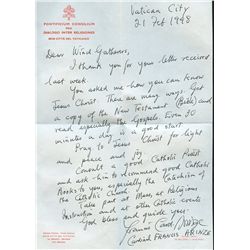 PONTIFICIUM CONSILIUM
PRO
DIALOGO INTER RELIGIONES
Vatican City
21 Feb 1998
Dear Wind Gatherers,
I thank you for your letter received
last week.
You asked me how you can know
Jesus Christ. There are many ways. Get
a copy of the New Testament (Bible) and
read especially the Gospels. Even 30
minutes a day is a good start.
Pray to Jesus Christ for light
and peace and joy.
Consult a good Catholic Priest
and ask him to recommend good Catholic
Books to you especially the Catechism of
the Catholic Church.
Take part at Mass, at Religious
Instruction and at other Catholic events
God bless and guide you.
Francis Card. Arinze
Cardinal FRANCIS ARINZE